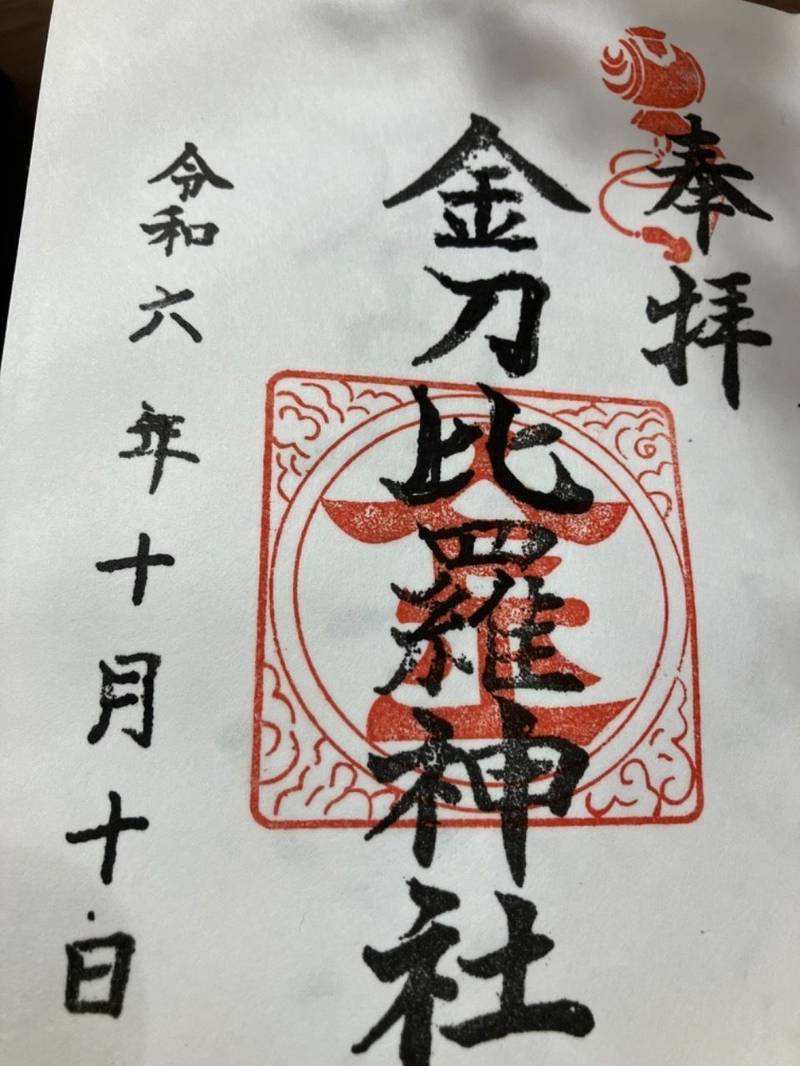 奉拝
金刀比羅神社
令和六年十月十日